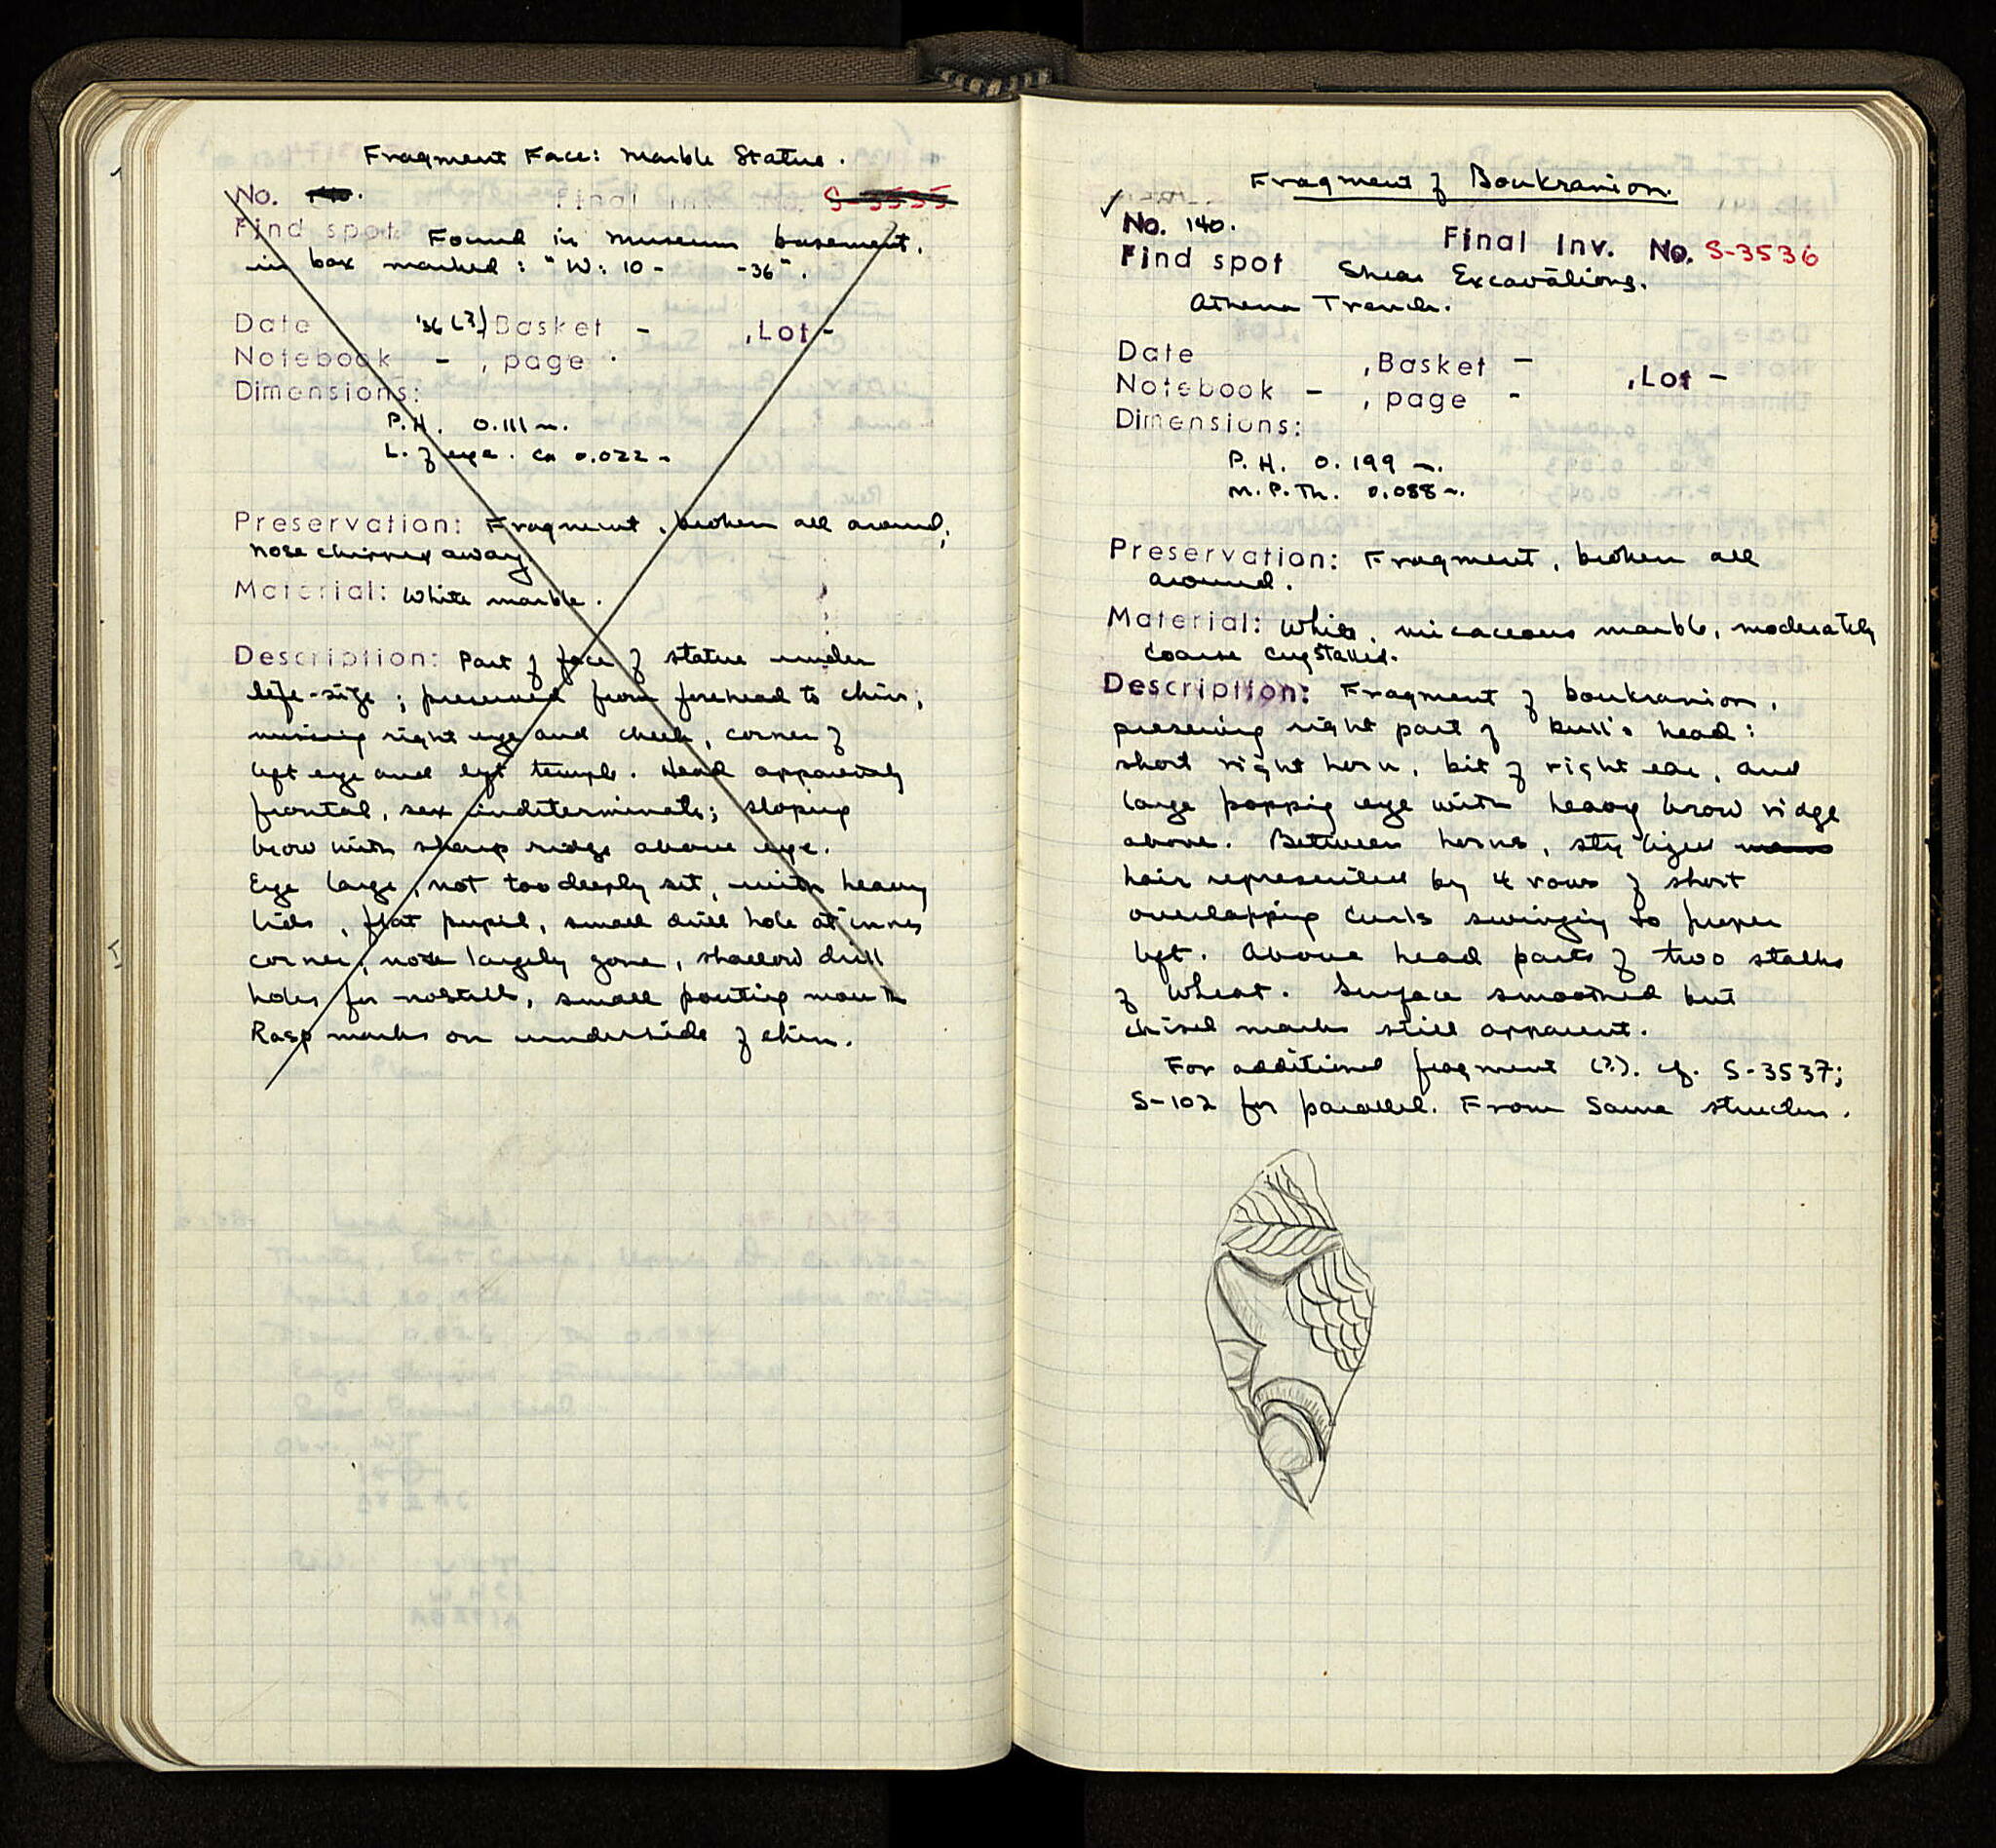 Fragment Face: Marble Statue.
No. 140. Final Inv. No. S-3535
Find spot Found in museum basement.
in box marked: "W: 10- -36".
Date '36 (?) Basket - , Lot -
Notebook - , page -
Dimensions:
P.H. 0.111 m.
L. of eye. ca 0.022 m
Preservation: Fragment, broken all around;
nose chipped away
Material: White marble.
Description: Part of face of statue under
life-size; preserved from forehead to chin;
missing right eye and cheek, corner of
left eye and left temple. Head apparently
frontal, sex indeterminate; sloping
brow with sharp ridge above eye.
Eye large, not too deeply set, with heavy
lids, flat pupil, small drill hole at inner
corner, nose largely gone, shallow drill
holes for nostrils, small pouting mouth
Rasp marks on underside of chin.
Fragment of Boukranion.
✓ No. 140. Final Inv. No. S-3536
Find spot Shear Excavations.
Athena Trench.
Date , Basket - , Lot -
Notebook - , page -
Dimensions:
P.H. 0.199 m.
M.P.Th. 0.088 m.
Preservation: Fragment, broken all
around.
Material: White, micaceous marble, moderately
coarse crystalled.
Description: Fragment of boukranion,
preserving right part of bull's head:
short right horn, bit of right ear, and
large popping eye with heavy brow ridge
above. Between horns, stylized
hair represented by 4 rows of short
overlapping curls swinging to proper
left. Above head parts of two stalks
of wheat. Surface smoothed but
chisel marks still apparent.
For additional fragment (?). cf. S-3537;
S-102 for parallel. From same structure.